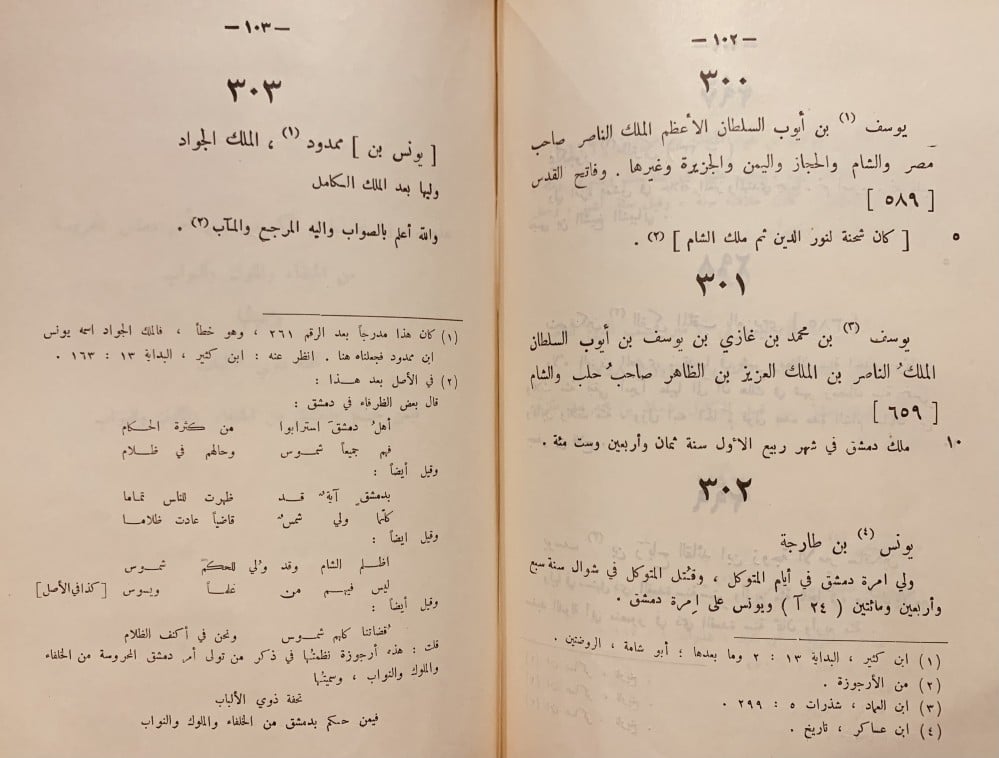 — ١٠٢ —
٣٠٠
يوسف (١) بن أيوب السلطان الأعظم الملك الناصر صاحب
مصر والشام والحجاز واليمن والجزيرة وغيرها . وفاتح القدس
[ ٥٨٩ ]
[ كان شحنة لنور الدين ثم ملك الشام ] (٢) . ٥
٣٠١
يوسف (٣) بن محمد بن غازي بن يوسف بن أيوب السلطان
الملكُ الناصر بن الملك العزيز بن الظاهر صاحبُ حلب والشام
[ ٦٥٩ ]
ملك دمشق في شهر ربيع الاول سنة ثمان وأربعين وست مئة . ١٠
٣٠٢
يونس (٤) بن طارجة
ولي امرة دمشق في أيام المتوكل ، وقُتل المتوكل في شوال سنة سبع
وأربعين ومائتين ( ٢٤ آ ) ويونس على إمرة دمشق .
(١) ابن كثير ، البداية ١٣ : ٢ وما بعدها ؛ أبو شامة ، الروضتين .
(٢) من الأرجوزة .
(٣) ابن العماد ، شذرات ٥ : ٢٩٩ .
(٤) ابن عساكر ، تاريخ .
— ١٠٣ —
٣٠٣
[ يونس بن ] ممدود (١) ، الملك الجواد
وليها بعد الملك الكامل
والله أعلم بالصواب واليه المرجع والمآب (٢) .
(١) كان هذا مدرجاً بعد الرقم ٢٦١ ، وهو خطأ ، فالملك الجواد اسمه يونس
ابن ممدود فجعلناه هنا . انظر عنه : ابن كثير ، البداية ١٣ : ١٦٣ .
(٢) في الأصل بعد هذا :
قال بعض الظرفاء في دمشق :
أهلُ دمشقَ استرابوا من كثرة الحكام
فهم جميعاً شموس وحالهم في ظلام
وقيل أيضاً :
بدمشقٍ آيةٌ قد ظهرت للناس تماما
كلّما ولي شمسٌ قاضياً عادت ظلاما
وقيل ايضاً :
اظلم الشام وقد ولي للحكم شموس
ليس فيهم من علماً وبوس [كذا في الأصل]
وقيل أيضاً :
قُضاتنا كلهم شموس ونحن في أكنف الظلام
قلت : هذه أرجوزة نظمتُها في ذكر من تولى أمر دمشق المحروسة من الخلفاء
والملوك والنواب ، وسميتُها
تحفة ذوي الألباب
فيمن حكم بدمشق من الخلفاء والملوك والنواب